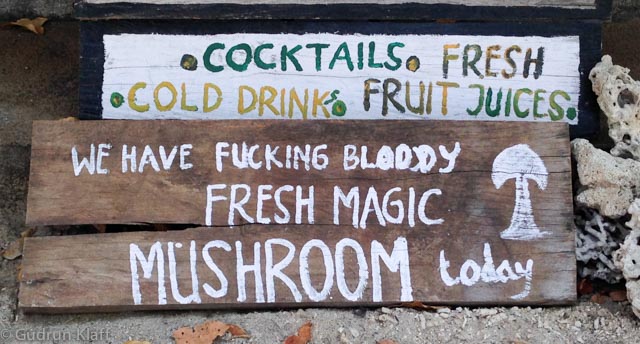 COCKTAILS. FRESH
COLD DRINKS FRUIT JUICES.
WE HAVE FUCKING BLOODY
FRESH MAGIC
MUSHROOM today
© Gudrun Klaft